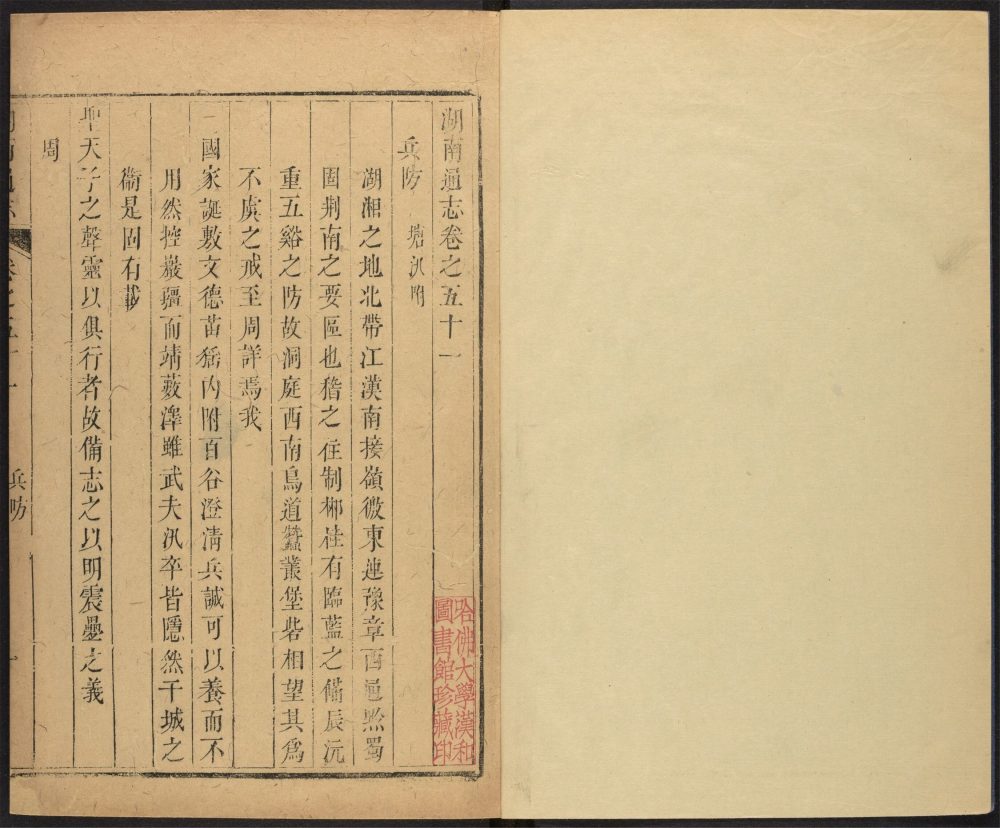 湖南通志卷之五十一
兵防 塘汛附
湖湘之地北帶江漢南接嶺徼東連豫章西通黔蜀
固荆南之要區也稽之往制郴桂有臨藍之備辰沅
重五谿之防故洞庭西南鳥道蠶叢堡砦相望其爲
不虞之戒至周詳焉我
國家誕敷文德苗猺内附百谷澄清兵誠可以養而不
用然控巖疆而靖薮澤雖武夫汛卒皆隱然干城之
衞是固有載
聖天子之聲靈以俱行者故備志之以明震曡之義
周
兵防
哈佛大學漢和
圖書館珍藏印